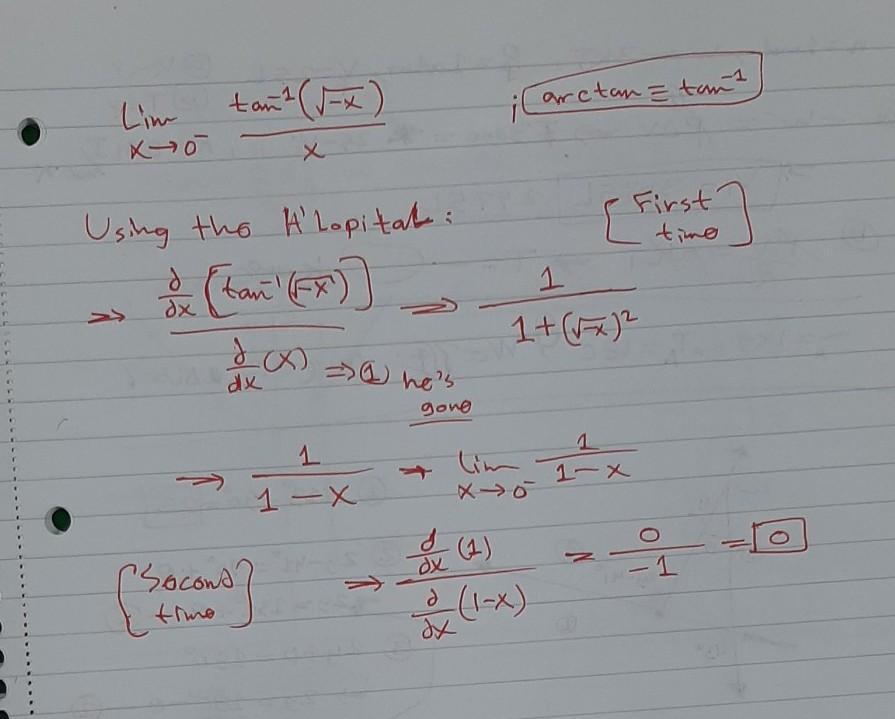 Lim x→0⁻ tan⁻¹(√-x) / x ; arctan ≡ tan⁻¹
Using the H'Lopital : [First time]
⇒ ∂/∂x [tan⁻¹(√-x)] / d/dx (x) ⇒ (1) he's gone ⇒ 1 / 1+(√-x)²
⇒ 1 / 1-x → Lim x→0⁻ 1 / 1-x
[Second time] ⇒ d/dx (1) / ∂/∂x (1-x) = 0 / -1 = 0